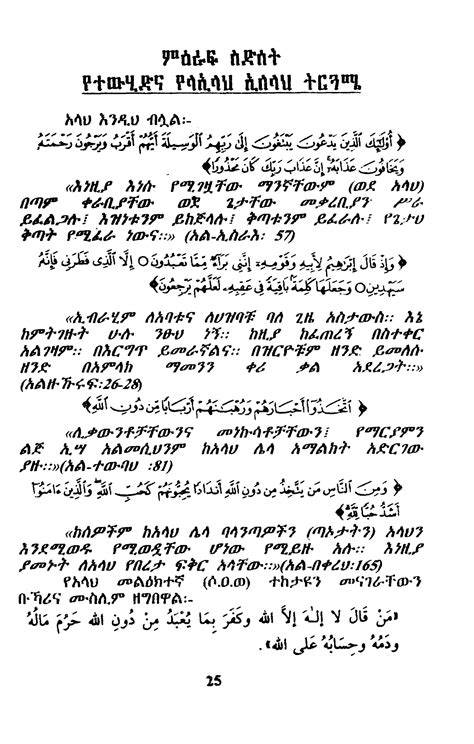 ምዕራፍ ስድስት
የተውሂድና የላኢላህ ኢለላህ ትርጓሜ
አላህ እንዲህ ብሏል፡-
﴿ أُوْلَـٰٓئِكَ الَّذِينَ يَدْعُونَ يَبْتَغُونَ إِلَىٰ رَبِّهِمُ الْوَسِيلَةَ أَيُّهُمْ أَقْرَبُ وَيَرْجُونَ رَحْمَتَهُ
وَيَخَافُونَ عَذَابَهُۥٓ إِنَّ عَذَابَ رَبِّكَ كَانَ مَحْذُورًا﴾
«እነዚያ እነሱ የሚገዟቸው ማንኛቸውም (ወደ አላህ)
በጣም ቀራቢያቸው ወደ ጌታቸው መቃረቢያን ሥራ
ይፈልጋሉ፤ እዝነቱንም ይከጅላሉ፤ ቅጣቱንም ይፈራሉ፤ የጌታህ
ቅጣት የሚፈራ ነውና፡፡» (አል-ኢስራእ: 57)
﴿ وَإِذْ قَالَ إِبْرَاهِيمُ لِأَبِيهِ وَقَوْمِهِۦٓ إِنَّنِى بَرَآءٌ مِّمَّا تَعْبُدُونَ ○ إِلَّا الَّذِى فَطَرَنِى فَإِنَّهُۥ
سَيَهْدِينِ ○ وَجَعَلَهَا كَلِمَةًۢ بَاقِيَةً فِى عَقِبِهِۦ لَعَلَّهُمْ يَرْجِعُونَ﴾
«ኢብራሂም ለአባቱና ለህዝቦቹ ባለ ጊዜ አስታውስ፡፡ እኔ
ከምትገዙት ሁሉ ንፁህ ነኝ፡፡ ከዚያ ከፈጠረኝ በስተቀር
አልገዛም፡፡ በእርግጥ ይመራኛልና፡፡ በዝርዮቹም ዘንድ ይመለሱ
ዘንድ በአምላክ ማመንን ቀሪ ቃል አደረጋት፡፡»
(አልዙኹሩፍ:26-28)
﴿ اتَّخَذُوٓا أَحْبَارَهُمْ وَرُهْبَـٰنَهُمْ أَرْبَابًا مِّن دُونِ اللَّهِ ﴾
«ሊቃውንቶቻቸውንና መነኩሳቶቻቸውን፤ የማርያምን
ልጅ ኢሣ አልመሲህንም ከአላህ ሌላ አማልክት አድርገው
ያዙ፡፡»(አል-ተውባህ :81)
﴿ وَمِنَ النَّاسِ مَن يَتَّخِذُ مِن دُونِ اللَّهِ أَندَادًا يُحِبُّونَهُمْ كَحُبِّ اللَّهِ وَالَّذِينَ ءَامَنُوٓا
أَشَدُّ حُبًّا لِّلَّهِ ﴾
«ከሰዎችም ከአላህ ሌላ ባላንጣዎችን (ጣኦታትን) አላህን
እንደሚወዱ የሚወዷቸው ሆነው የሚይዙ አሉ፡፡ እነዚያ
ያመኑት ለአላህ የበረታ ፍቅር አላቸው፡፡»(አል-በቀረህ:165)
የአላህ መልዕክተኛ (ሶ.ዐ.ወ) ተከታዩን መናገራቸውን
ቡኻሪና ሙስሊም ዘግበዋል፡-
«مَنْ قَالَ لا إِلـٰهَ إِلاَّ الله وكَفَرَ بِمَا يُعْبَدُ مِنْ دُونِ الله حَرُمَ مَالُهُ
ودَمُهُ وحِسَابُهُ عَلى الله».
25